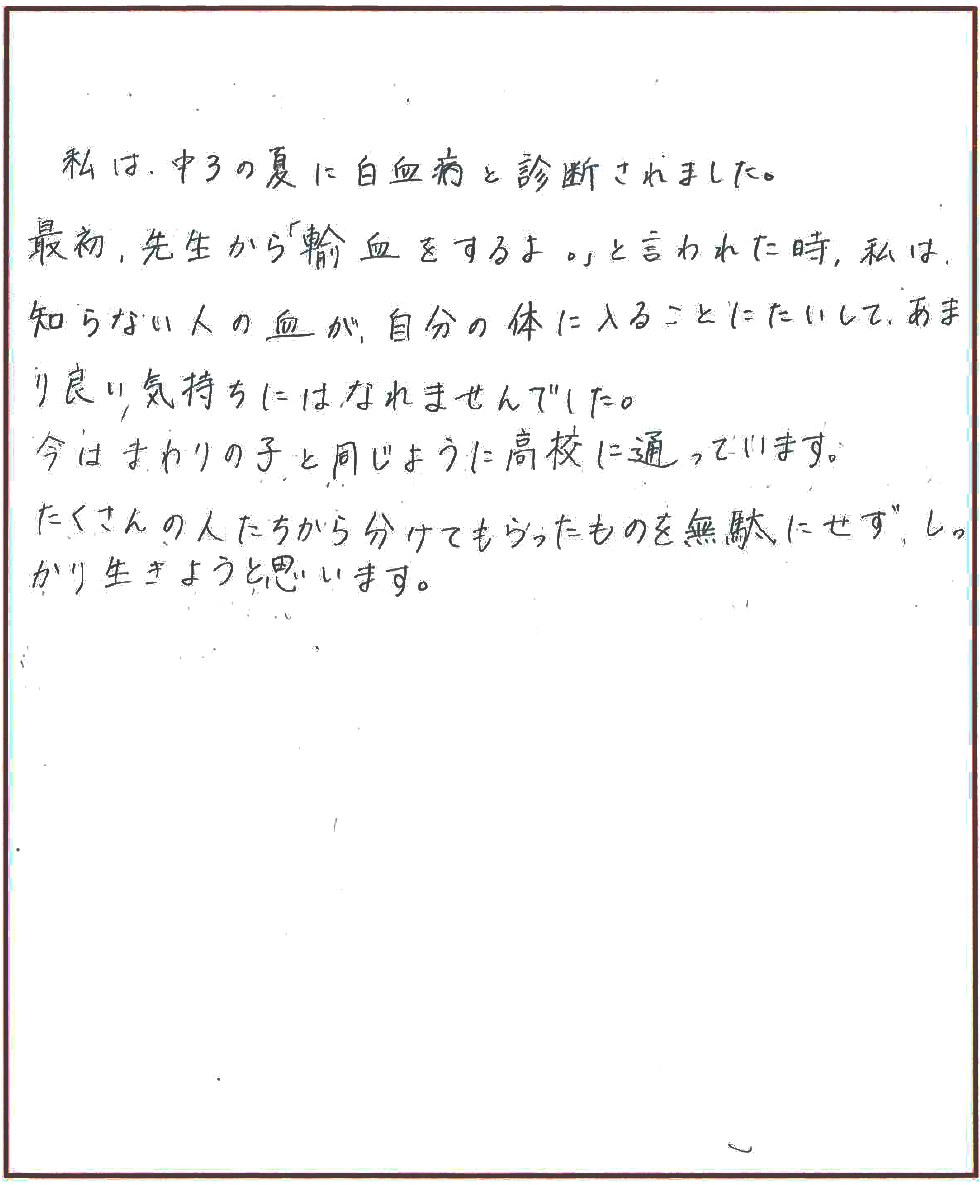 私は、中3の夏に白血病と診断されました。
最初、先生から「輸血をするよ。」と言われた時、私は、
知らない人の血が、自分の体に入ることにたいして、あま
り良い気持ちにはなれませんでした。
今はまわりの子と同じように高校に通っています。
たくさんの人たちから分けてもらったものを無駄にせず、しっ
かり生きようと思います。